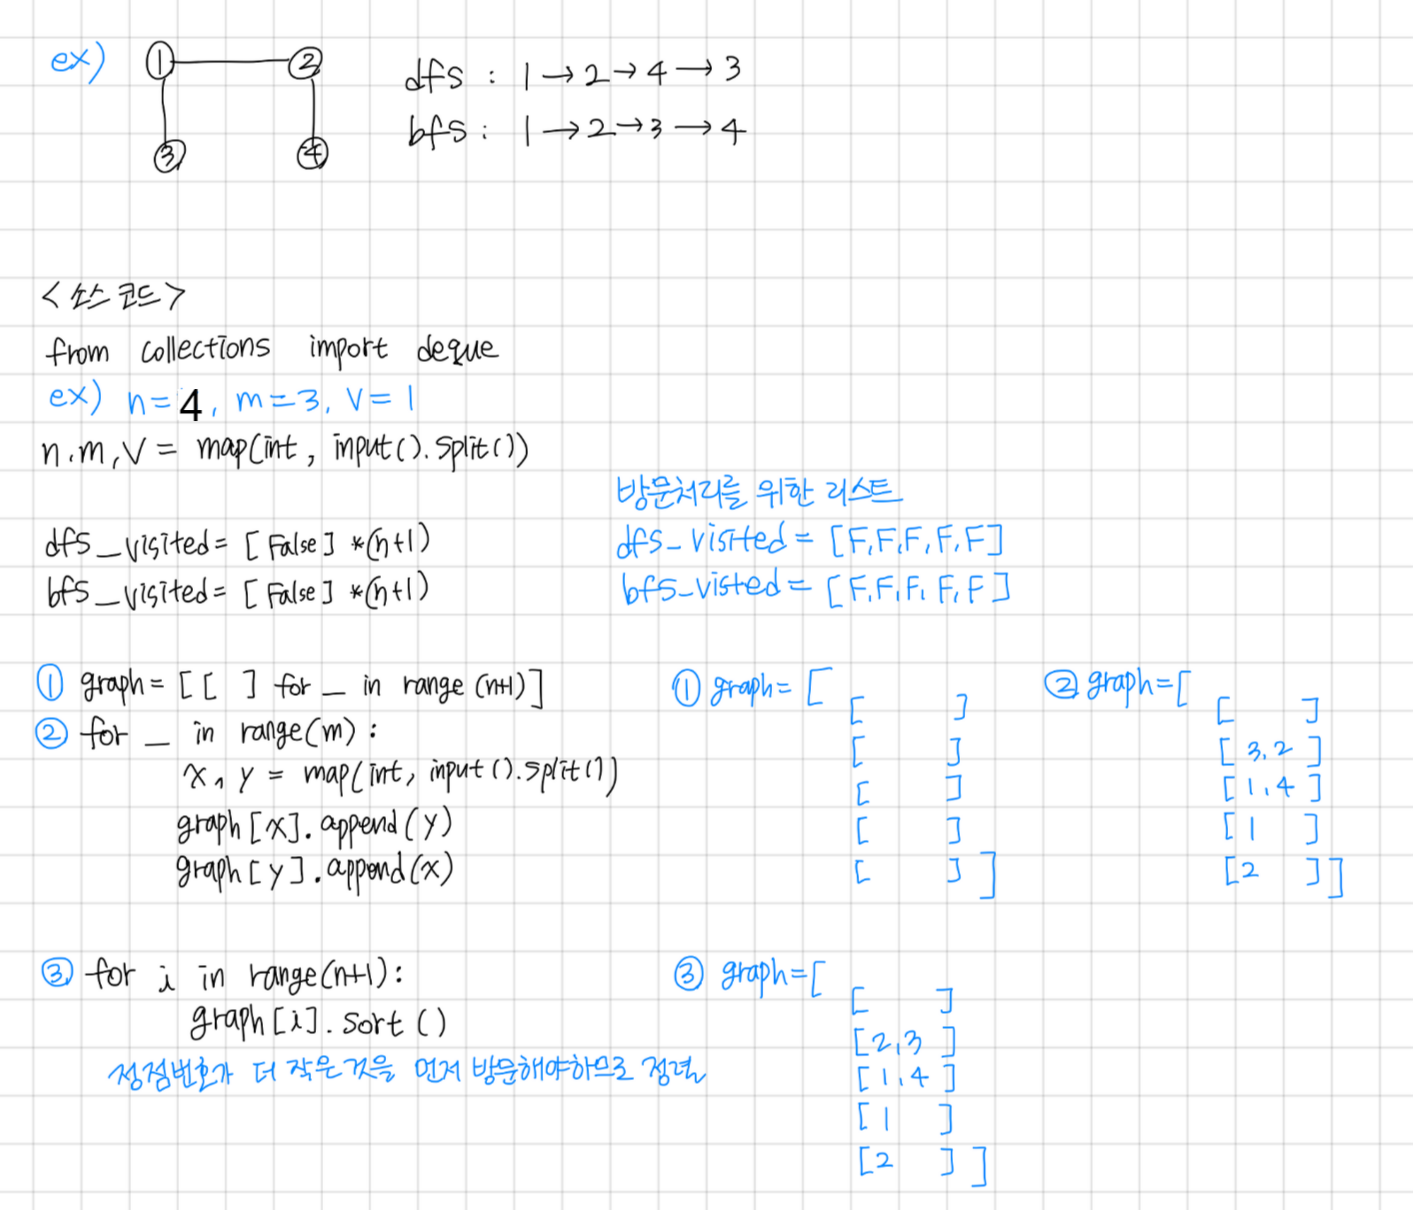 ex) ① ② dfs : 1→2→4→3
③ ④ bfs : 1→2→3→4
<소스 코드>
from collections import deque
ex) n=4, m=3, V=1
n.m,V = map(int, input().split())
방문처리를 위한 리스트
dfs_visited= [False] *(n+1) dfs_visited = [F,F,F,F,F]
bfs_visited= [False] *(n+1) bfs_visted = [F,F,F,F,F]
① graph= [[ ] for _ in range (n+1)] ① graph= [ ② graph=[
[ ] [ ]
② for _ in range(m) :
[ ] [3,2]
x, y = map(int, input().split())
[ ] [1,4]
graph[x].append(y) [ ] [1 ]
graph[y].append(x) [ ]] [2 ]]
③ for i in range(n+1): ③ graph=[
[ ]
graph[i].sort() [2,3]
정점번호가 더 작은것을 먼저 방문해야하므로 정렬 [1,4]
[1 ]
[2 ]]